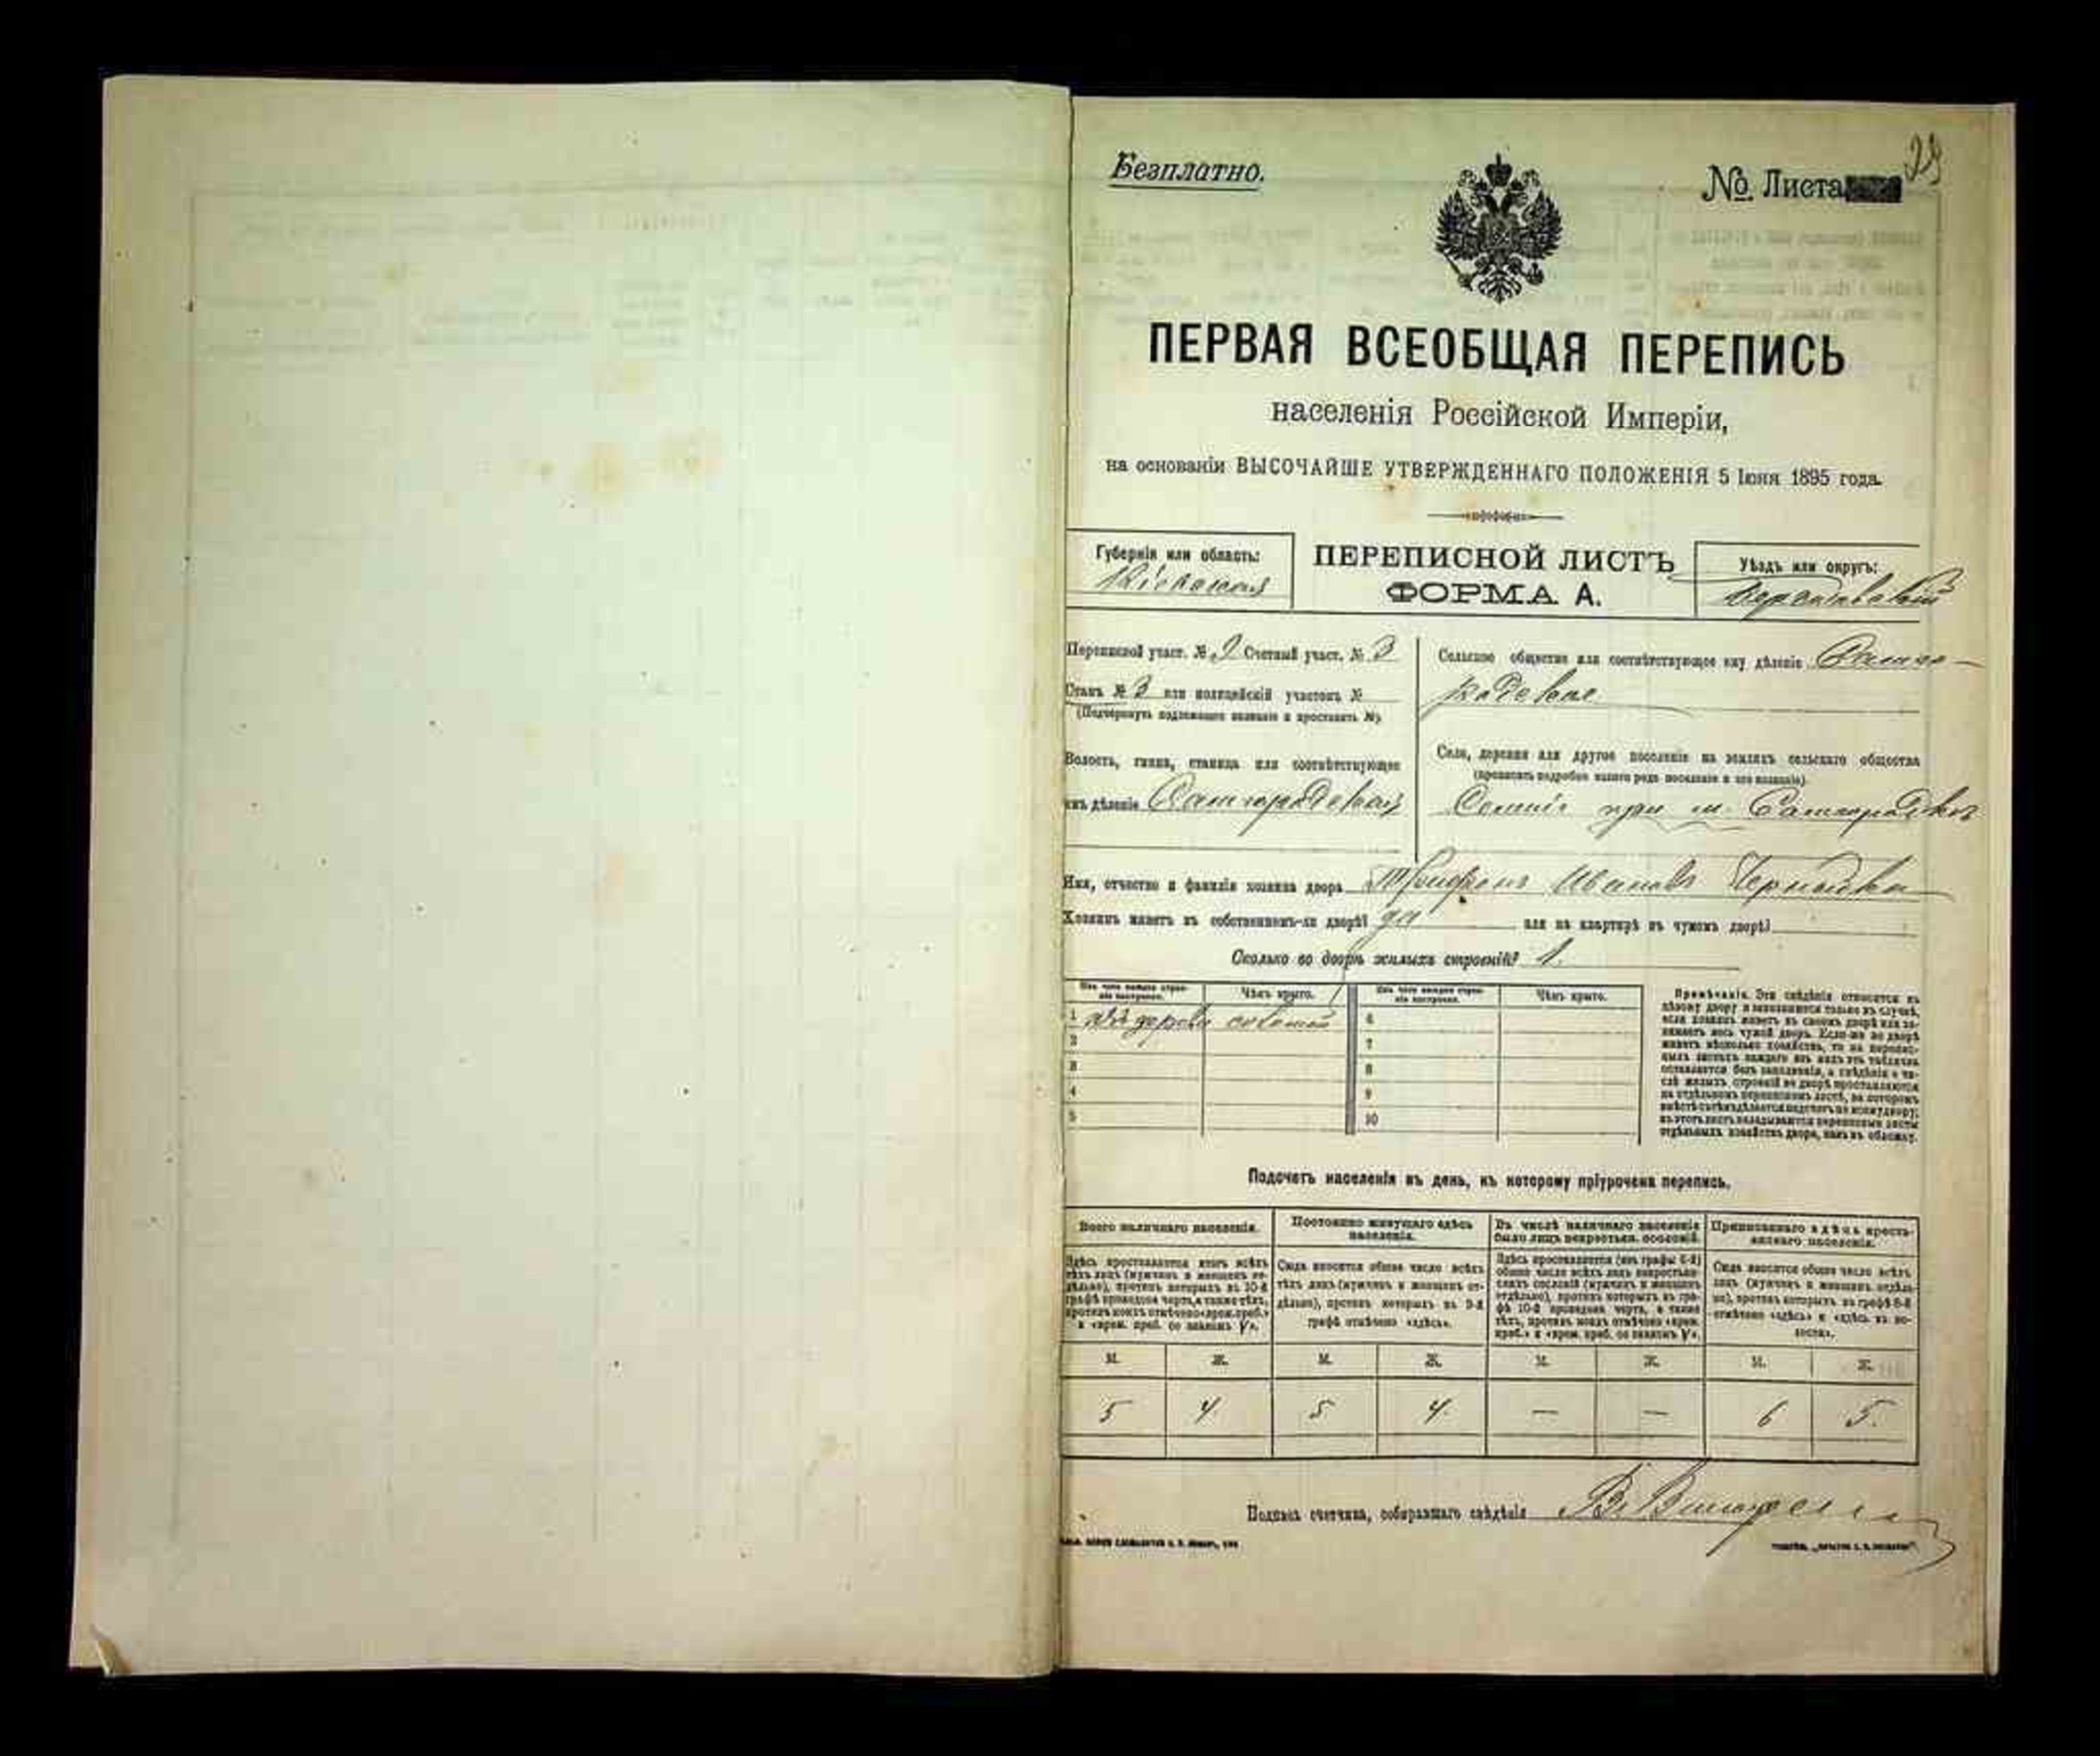 Безплатно.
№ Листа
29
ПЕРВАЯ ВСЕОБЩАЯ ПЕРЕПИСЬ
населенія Россійской Имперіи,
на основаніи ВЫСОЧАЙШЕ УТВЕРЖДЕННАГО ПОЛОЖЕНІЯ 5 Іюня 1895 года.
Губернія или область:
Кіевская
ПЕРЕПИСНОЙ ЛИСТЪ
ФОРМА А.
Уѣздъ или округъ:
Бердичевскій
Переписной участ. № 2 Счетный участ. № 3
Станъ № 3 или полицейскій участокъ №
(Подчеркнуть подлежащее названіе и проставить №).
Волость, гмина, станица или соотвѣтствующее
имъ дѣленіе Самгородская
Сельское общество или соотвѣтствующее ему дѣленіе Самго-
родское
Село, деревня или другое поселеніе на земляхъ сельскаго общества
(прописать подробно какого рода поселеніе и его названіе).
при м. Самгородкѣ
Имя, отчество и фамилія хозяина двора Трифонъ Ивановъ
Хозяинъ живетъ въ собственномъ-ли дворѣ? да или на квартирѣ въ чужомъ дворѣ?
Сколько во дворѣ жилыхъ строеній? 1.
Изъ чего каждое строеніе построено.
Чѣмъ крыто.
Изъ чего каждое строеніе построено.
Чѣмъ крыто.
1 изъ дерева соломой
6
2
7
3
8
4
9
5
10
Примѣчаніе. Эти свѣдѣнія относятся къ
цѣлому двору и заполняются только въ случаѣ,
если хозяинъ живетъ въ своемъ дворѣ или за-
нимаетъ весь чужой дворъ. Если-же во дворѣ
живетъ нѣсколько хозяйствъ, то на перепис-
ныхъ листахъ каждаго изъ нихъ эта табличка
оставляется безъ заполненія, а свѣдѣнія о чи-
слѣ жилыхъ строеній во дворѣ проставляются
на отдѣльномъ переписномъ листѣ, на которомъ
вмѣстѣ съ тѣмъ дѣлается подсчетъ по всему двору;
въ этотъ листъ вкладываются переписные листы
отдѣльныхъ хозяйствъ двора, какъ въ обложку.
Подсчетъ населенія въ день, къ которому пріурочена перепись.
Всего наличнаго населенія.
Постоянно живущаго здѣсь
населенія.
Въ числѣ наличнаго населенія
было лицъ некрестьян. сословій.
Приписаннаго здѣсь кресть-
янскаго населенія.
Здѣсь проставляется итогъ всѣхъ
тѣхъ лицъ (мужчинъ и женщинъ от-
дѣльно), противъ которыхъ въ 10-й
графѣ проведена черта, а также тѣхъ,
противъ коихъ отмѣчено «врем. преб.»
и «врем. преб. со знакомъ V».
Сюда вносится общее число всѣхъ
тѣхъ лицъ (мужчинъ и женщинъ от-
дѣльно), противъ которыхъ въ 9-й
графѣ отмѣчено «здѣсь».
Здѣсь проставляется (изъ графы 6-й)
общее число всѣхъ лицъ некрестьян-
скихъ сословій (мужчинъ и женщинъ
отдѣльно), противъ которыхъ въ гра-
фѣ 10-й проведена черта, а также
тѣхъ, противъ коихъ отмѣчено «врем.
преб.» и «врем. преб. со знакомъ V».
Сюда вносится общее число всѣхъ
лицъ (мужчинъ и женщинъ отдѣль-
но), противъ которыхъ въ графѣ 8-й
отмѣчено «здѣсь» и «здѣсь въ во-
лости».
М. Ж. М. Ж. М. Ж. М. Ж.
5 4 5 4. — — 6 5.
Подпись счетчика, собиравшаго свѣдѣнія